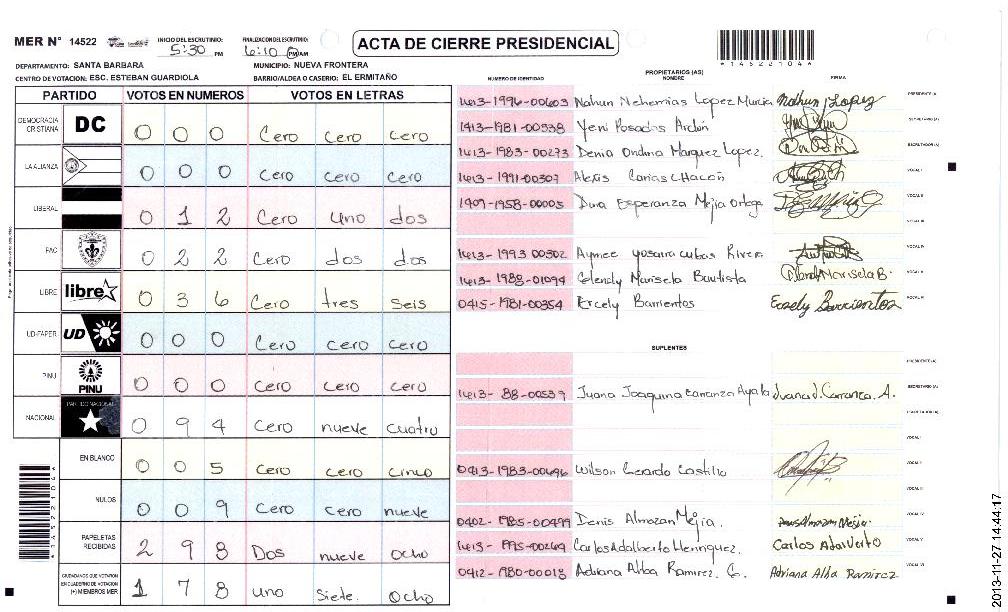 MER N° 14522 INICIO DEL ESCRUTINIO: 5:30 PM FINALIZACION DEL ESCRUTINIO: 6:10 PM AM ACTA DE CIERRE PRESIDENCIAL
*14522104*
DEPARTAMENTO: SANTA BARBARA MUNICIPIO: NUEVA FRONTERA
CENTRO DE VOTACION: ESC. ESTEBAN GUARDIOLA BARRIO/ALDEA O CASERIO: EL ERMITAÑO
PARTIDO VOTOS EN NUMEROS VOTOS EN LETRAS
DEMOCRACIA CRISTIANA DC 0 0 0 Cero Cero Cero
LA ALIANZA 0 0 0 Cero Cero Cero
LIBERAL 0 1 2 Cero Uno dos
PAC 0 2 2 Cero dos dos
LIBRE libre 0 3 6 Cero tres seis
UD-FAPER UD 0 0 0 Cero Cero Cero
PINU PINU 0 0 0 Cero Cero Cero
NACIONAL PARTIDO NACIONAL 0 9 4 Cero nueve cuatro
EN BLANCO 0 0 5 Cero Cero Cinco
NULOS 0 0 9 Cero Cero nueve
PAPELETAS RECIBIDAS 2 9 8 Dos nueve Ocho
CIUDADANOS QUE VOTARON EN CUADERNO DE VOTACION (+) MIEMBROS MER 1 7 8 uno Siete. Ocho
*14522104*
NUMERO DE IDENTIDAD PROPIETARIOS (AS) NOMBRE FIRMA
1413-1996-00603 Nahun Nehemias Lopez Murcia Nahun Lopez PRESIDENTE (A)
1413-1981-00538 Yeni Posadas SECRETARIO (A)
1413-1983-00273 Denia Ondina Marquez Lopez. ESCRUTADOR (A)
1413-1991-00307 Alexis Canas Chacón VOCAL I
1409-1958-00005 Dina Esperanza Mejia Ortega VOCAL II
VOCAL III
1413-1993-00502 Aymee Yosara Cubas Rivera VOCAL IV
1413-1988-01094 Glendy Marisela Bautista Glendy Marisela B. VOCAL V
0415-1981-00354 Ercely Barrientos Ercely Barrientos VOCAL VI
SUPLENTES
PRESIDENTE (A)
1413- 88-00539 Juana Joaquina Carranza Ayala Juana J. Carranza A. SECRETARIO (A)
ESCRUTADOR (A)
VOCAL I
0413-1983-00696 Wilson Gerardo Castillo VOCAL II
VOCAL III
0402-1985-00499 Denis Almazan Mejia. Denis Almazan Mejia. VOCAL IV
1413- 1995-00269 Carlos Adalberto Henriquez. Carlos Adalverto VOCAL V
0412-1980-00015 Adriana Alba Ramirez. G. Adriana Alba Ramirez VOCAL VI
2013-11-27 14:44:17